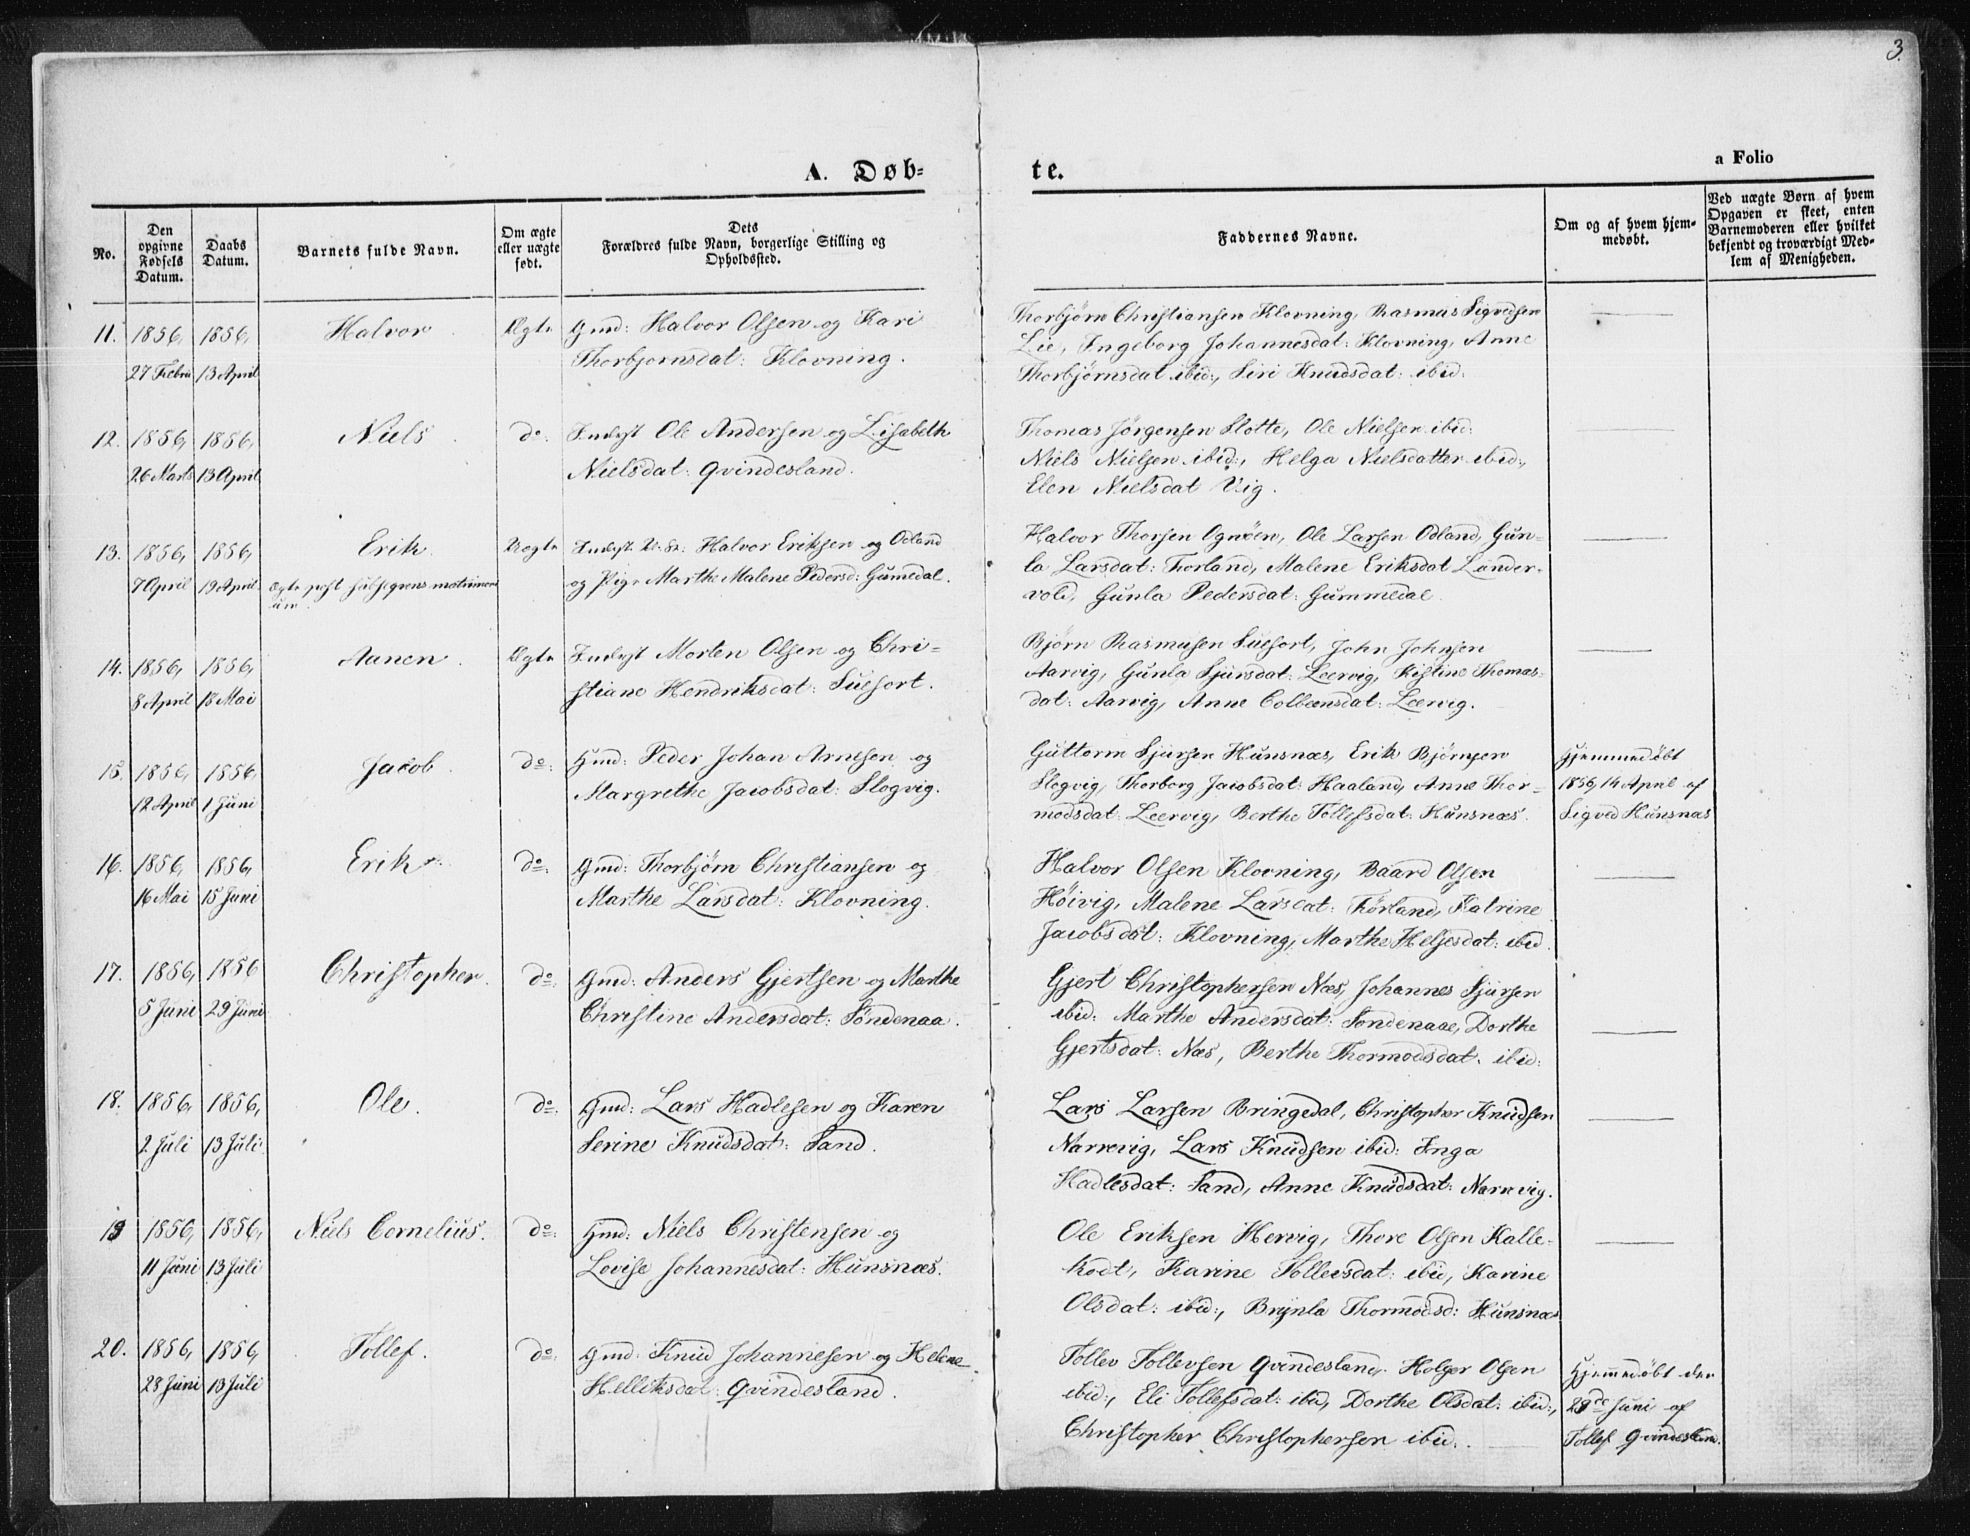 3.
A. Døb-
te.
a Folio
No.
Den opgivne Fødsels Datum.
Daabs Datum.
Barnets fulde Navn.
Om ægte eller uægte født.
Dets Forældres fulde Navn, borgerlige Stilling og Opholdssted.
Faddernes Navne.
Om og af hvem hjemmedøbt.
Ved uægte Børn af hvem Opgaven er skeet, enten Barnemoderen eller hvilket bekjendt og troværdigt Medlem af Menigheden.
11. 1856, 1856, Halvor Ægte Gmd: Halvor Olsen og Kari
27 Febru 13 April Thorbjørnsdat: Klovning.
Thorbjørn Christiansen Klovning, Rasmus Sigvedsen
Lie, Ingeborg Johannesdat: Klovning, Anne
Thorbjørnsdat ibid:, Siri Knudsdat: ibid:
12. 1856, 1856, Niels do: Inderst Ole Andersen og Lisabeth
26 Marts 13 April Nielsdat: Qvindesland.
Thomas Jörgensen Slotte, Ole Nielsen ibid:
Niels Nielsen ibid:, Helga Nielsdatter ibid:,
Elen Nielsdat Vig.
13. 1856, 1856, Erik Uegte Inderst Halvor Eriksen og Odland
7 April 19 April og Pige Marthe Malene Pedersd: Gumedal.
Ægte post
Halvor Thorsen Ognöen, Ole Larsen Odland, Gun-
la Larsdat: Förland, Malene Eriksdat Lander-
vold, Gunla Pedersdat: Gummedal
14. 1856, 1856, Aanen Ægte Inderst Morten Olsen og Chri-
8 April 18 Mai stiane Hendriksdat: Suefort.
Bjørn Rasmusen Suefort, John Johnsen
Aarvig, Gunla Sjursdat: Leervig, Kistine Thomas-
dat: Aarvig, Anne Colbensdat: Leervig.
15. 1856, 1856, Jacob do: Gmd: Peder Johan Arnesen og
12 April 1 Juni Margrethe Jacobsdat: Slogvig.
Guttorm Sjursen Hunsnæs, Erik Björnsen
Slogvig, Thorborg Jacobsdat: Haaland, Anne Thor-
modsdat: Leervig, Berthe Tollefsdat: Hunsnæs.
Hjemmedøbt
1856, 14 April af
Sigved Hunsnæs
16. 1856, 1856, Erik do: Gmd: Thorbjørn Christiansen og
16 Mai 15 Juni Marthe Larsdat: Klovning.
Halvor Olsen Klovning, Baard Olsen
Höivig, Malene Larsdat: Förland, Katrine
Jacobsdat: Klovning, Marthe Heljesdat: ibid
17. 1856, 1856 Christopher. do: Gmd: Anders Gjertsen og Marthe
5 Juni 29 Juni Christine Andersdat: Söndenaa.
Gjert Christophersen Næs, Johannes Sjursen
ibid: Marthe Andersdat: Söndenaae, Dorthe
Gjertsdat: Næs, Berthe Thormodsdat. ibid:
18. 1856, 1856, Ole. do: Gmd: Lars Hadlesen og Karen
2 Juli 13 Juli Serine Knudsdat: Sand.
Lars Larsen Bringedal, Christopher Knudsen
Narrevig, Lars Knudsen ibid: Inga
Hadlesdat: Sand, Anne Knudsdat: Narrevig.
19 1856, 1856, Niels Cornelius. do: Gmd: Niels Christensen og
11 Juni 13 Juli Lovise Johannesdat: Hunsnæs.
Ole Eriksen Hervig, Thore Olsen Kalle-
kodt, Karine Tollevsdat: ibid, Karine
Olsdat: ibid:, Brynla Thormodsd: Hunsnæs
20. 1856, 1856, Tollef. do: Gmd: Knud Johannesen og Helene
28 Juni 13 Juli Helliksdat: Qvindesland.
Tollev Tollevsen Qvindesland, Holger Olsen
ibid:, Eli Tollefsdat: ibid, Dorthe Olsdat: ibid:,
Christopher Christophersen ibid.
Hjemmedøbt den
29de Juni af
Tollef Qvindesland.